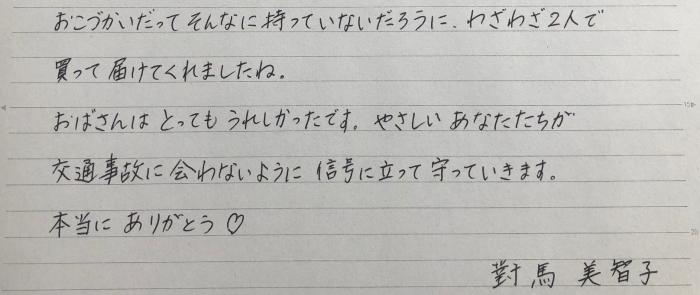 おこづかいだって そんなに 持っていないだろうに、わざわざ2人で
買って 届けてくれましたね。
おばさんは とっても うれしかったです。やさしい あなたたちが
交通事故に 会わないように 信号に立って 守っていきます。
本当に ありがとう♡
對馬 美智子